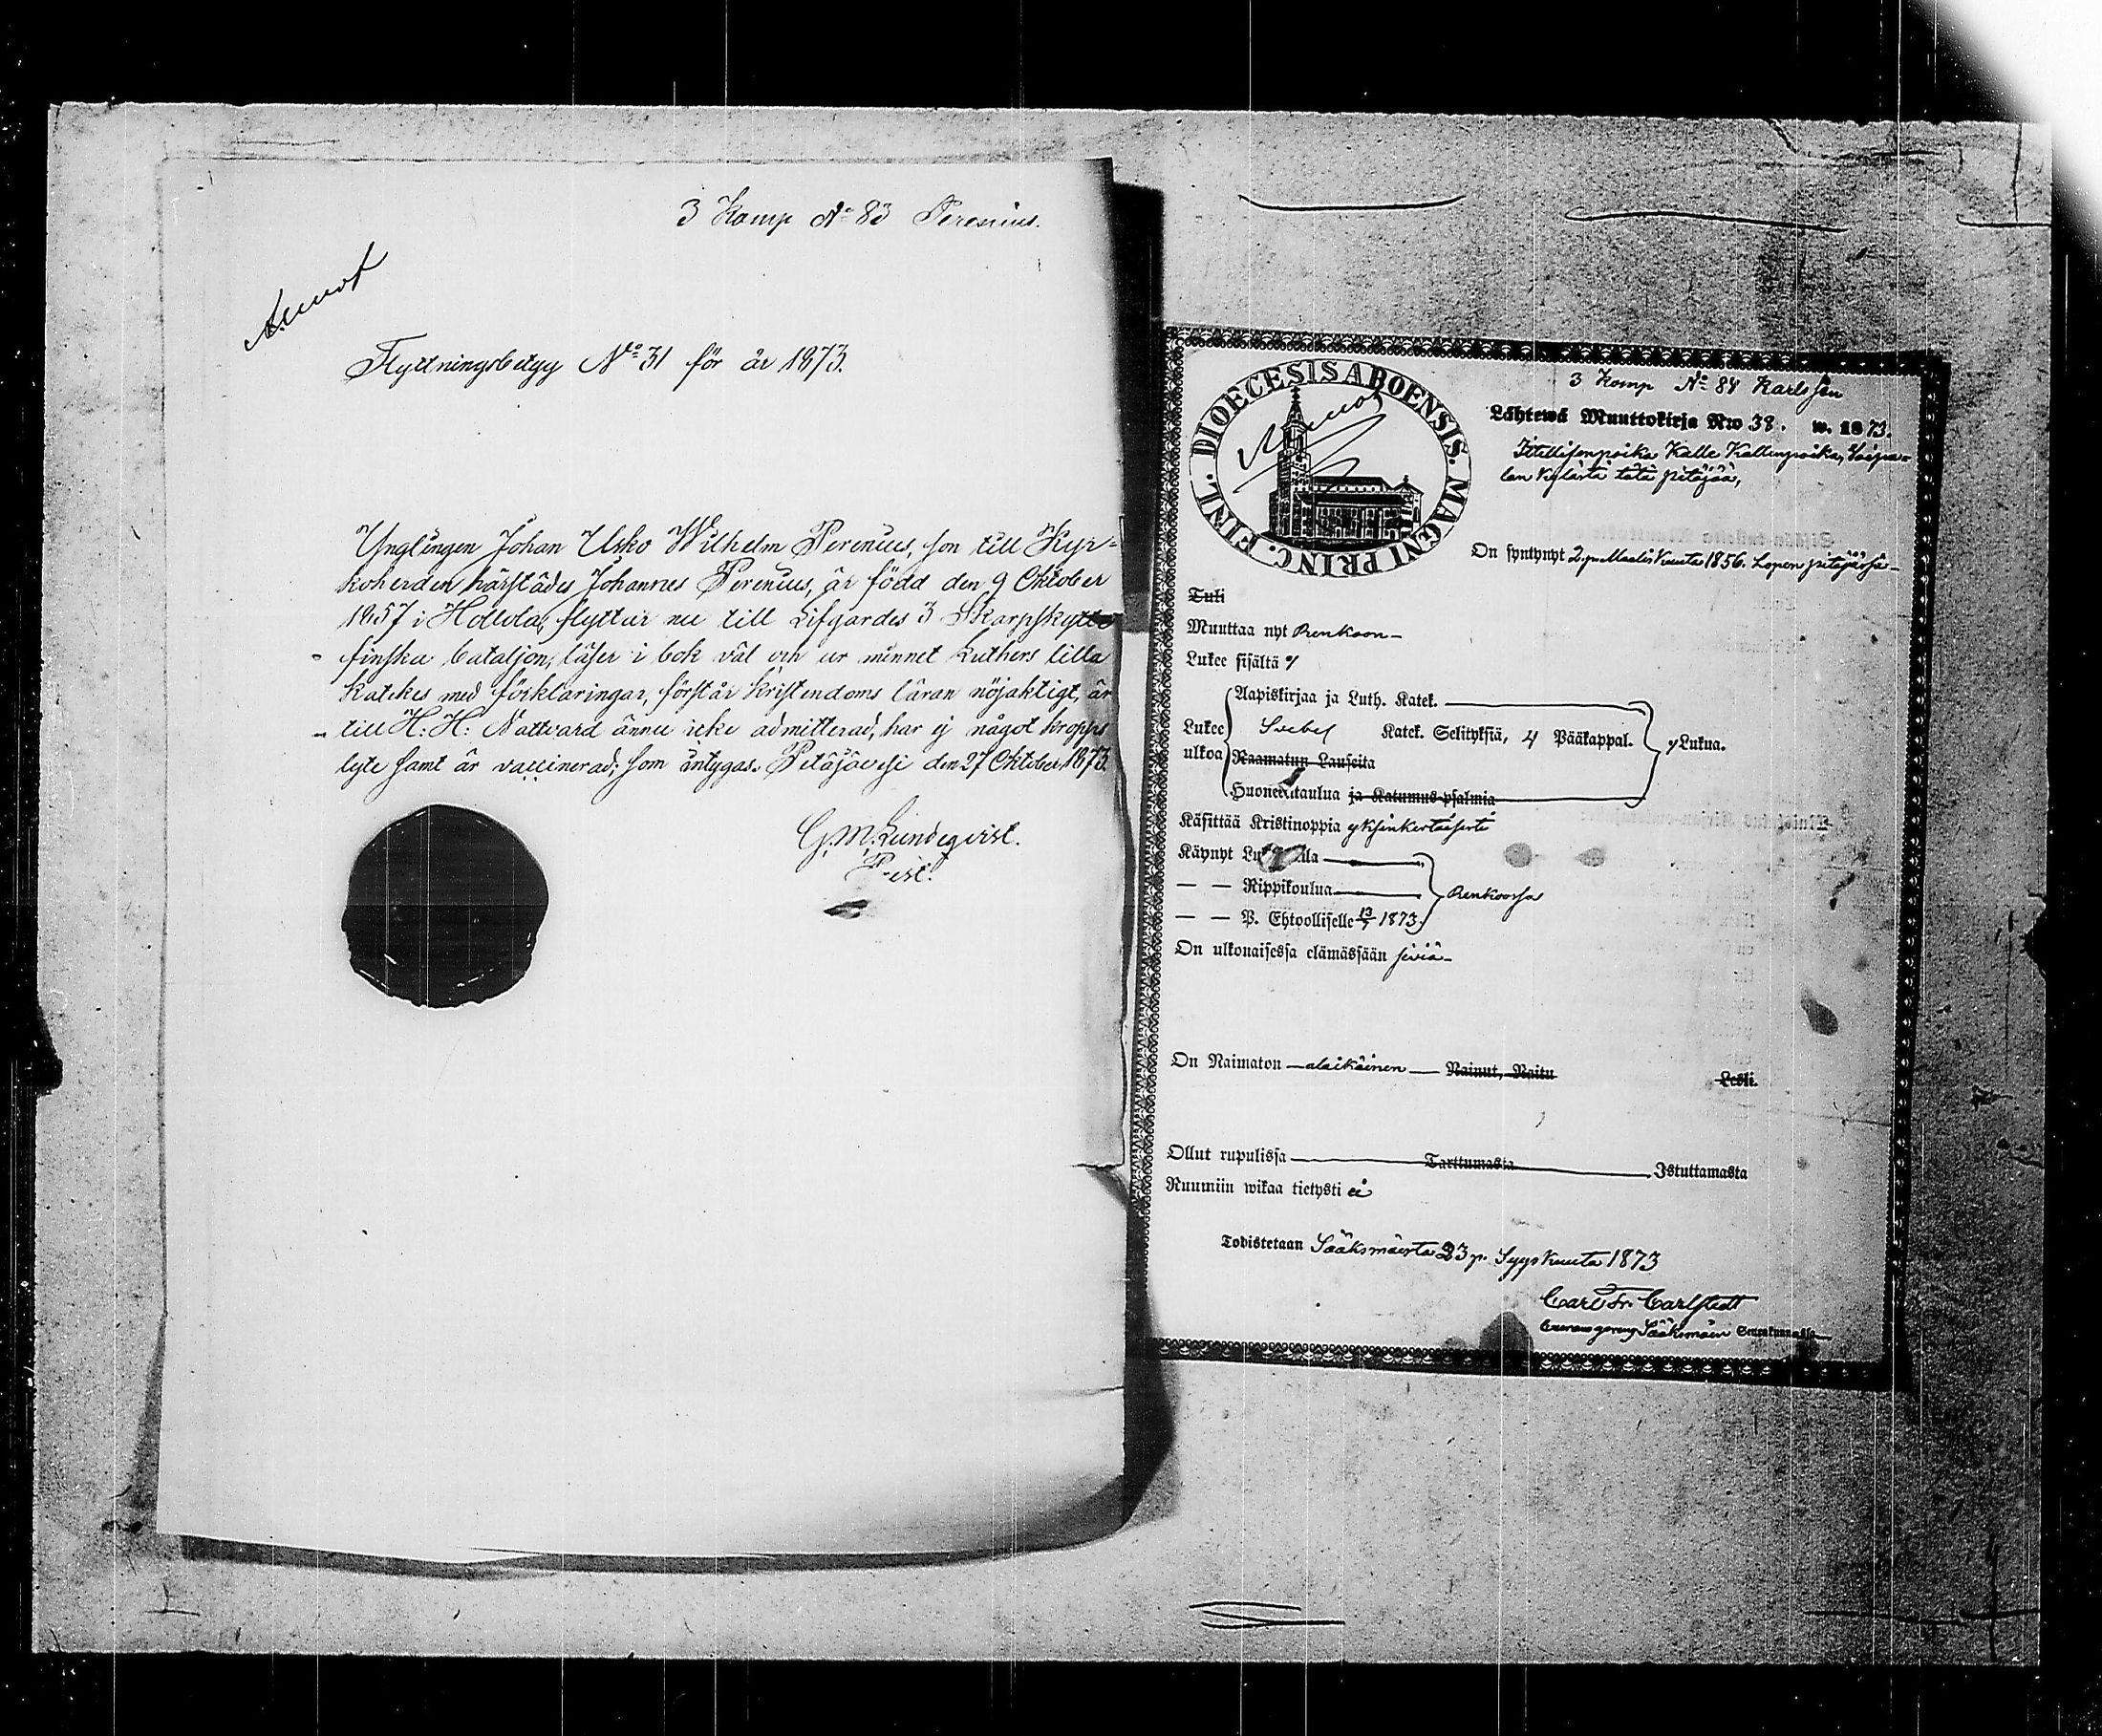 3 Komp No 83 Perenius.
Flyttningsbetyg No 31 för år 1873.
Ynglingen Johan Usko Wilhelm Perenius, son till Kyr-
koherden härstädes Johannes Perenius, är född den 9 Oktober
1857 i Hollola, flyttar nu till Lifgardes 3 Skarpskytte
finska bataljon, läser i bok väl och ur minnet Luthers lilla
Katekes med förklaringar, förstår Kristendoms läran nöjaktigt, är
till H: H: Nattvard ännu icke admitterad, har ej något kropps
lyte samt är vaccinerad; som intygas. Petäjävesi den 27 Oktober 1873.
G. M. Lundeqvist.
3 Komp No 84 Karlsson
DIOECESIS ABOENSIS. MAGNI PRINC. FINL.
Lähtewä Muuttokirja Nro 38. w. 1873.
Itellisenpoika Kalle Kallenpoika,
lan kylästä tätä pitäjää,
On syntynyt 2 p. Maaliskuuta 1856. Lopen pitäjässä
Tuli
Muuttaa nyt Renkoon
Lukee sisältä y
Lukee ulkoa
Aapiskirjaa ja Luth. Katek.
Svebel Katek. Selityksiä, 4 Pääkappal. y Lukua.
Raamatun Lauseita
Huoneentaulua ja Katumus-psalmia
Käsittää Kristinoppia yksinkertaisesti
Käynyt
— — Rippikoulua Renkoossa
— — P. Ehtoolliselle 13/7 1873
On ulkonaisessa elämässään siviä
On Naimaton alaikäinen Nainut, Naitu Leski.
Ollut rupulissa Tarttumasta Istuttamasta
Ruumiin wikaa tietysti ei
Todistetaan Sääksmäestä 23 p. Syyskuuta 1873
Carl Fr. Carlstedt
Sääksmäen Seurakunnassa